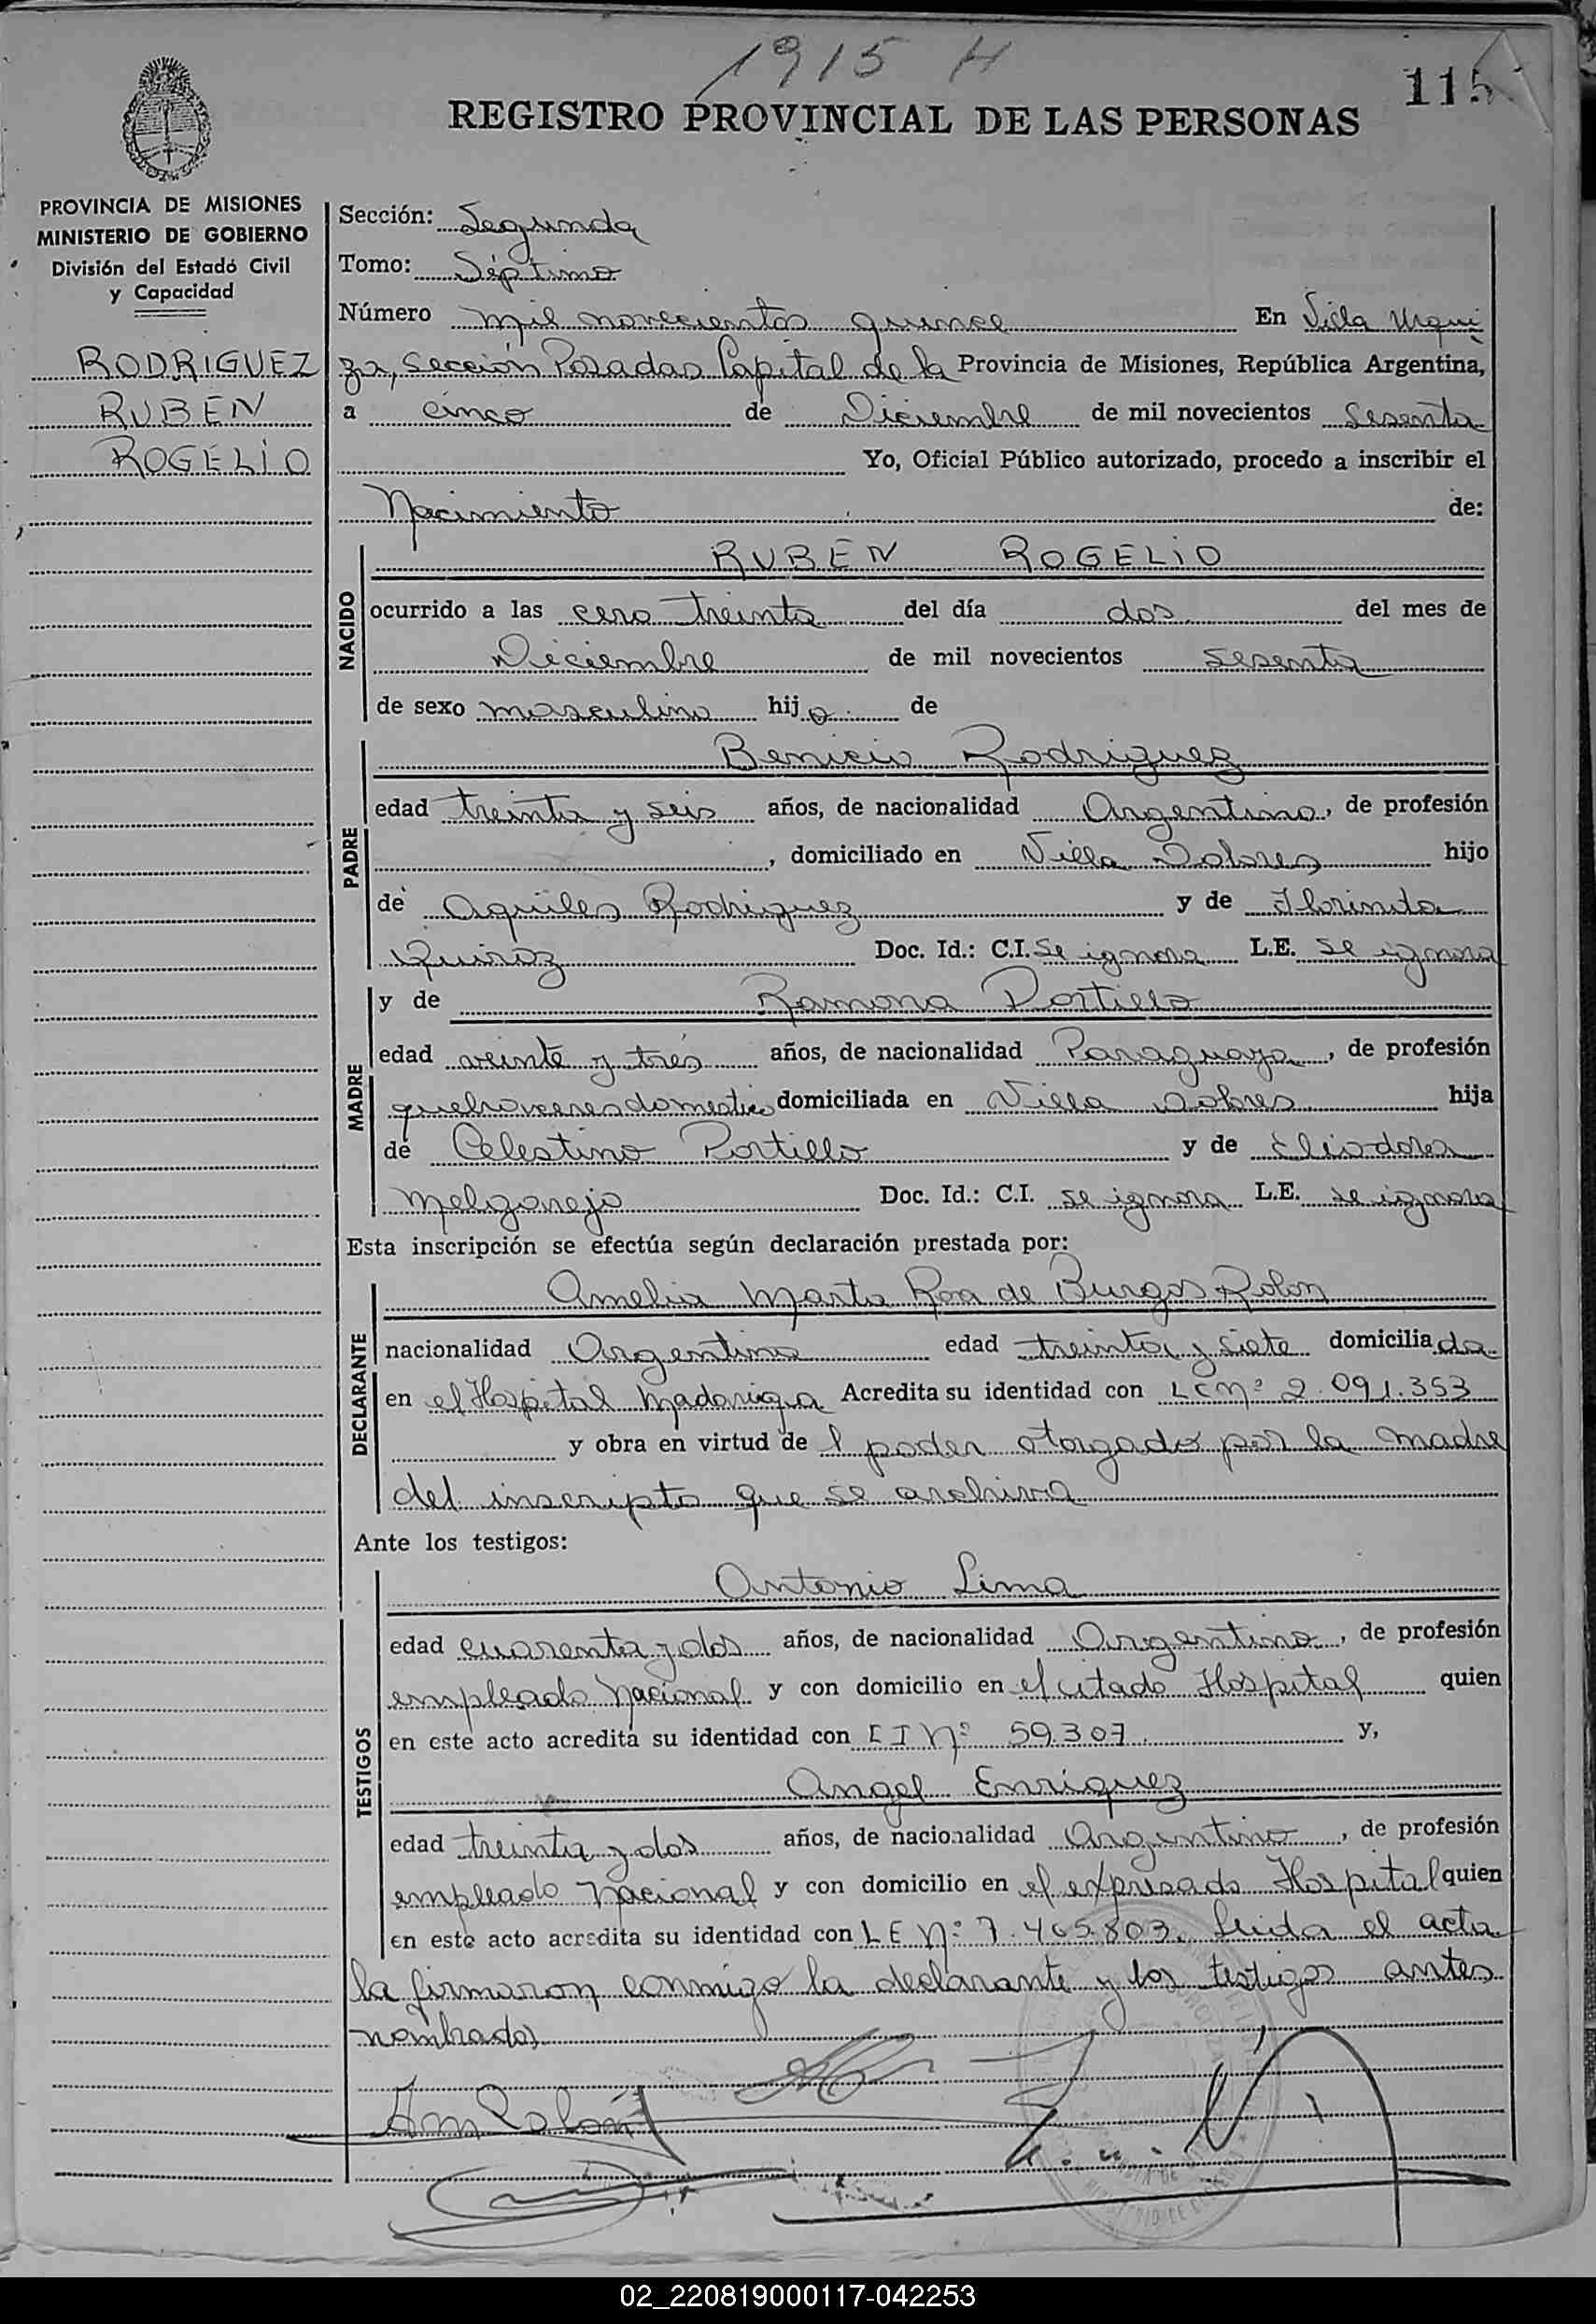 1915 H
115
REGISTRO PROVINCIAL DE LAS PERSONAS
PROVINCIA DE MISIONES
MINISTERIO DE GOBIERNO
División del Estado Civil
y Capacidad
RODRIGUEZ
RUBEN
ROGELIO
Sección: Segunda
Tomo: Séptimo
Número mil novecientos quince En Villa Urqui
za, Sección Posadas Capital de la Provincia de Misiones, República Argentina,
a cinco de Diciembre de mil novecientos sesenta
Yo, Oficial Público autorizado, procedo a inscribir el
Nacimiento de:
NACIDO
RUBEN ROGELIO
ocurrido a las cero treinta del día dos del mes de
Diciembre de mil novecientos sesenta
de sexo masculino hijo de
PADRE
Benicio Rodriguez
edad treinta y seis años, de nacionalidad Argentino, de profesión
, domiciliado en Villa Dolores hijo
de Aquiles Rodriguez y de Florinda
Quiroz Doc. Id.: C.I. Se ignora L.E. se ignora
MADRE
y de Ramona Portillo
edad veinte y trés años, de nacionalidad Paraguaya, de profesión
quehaceres domestico domiciliada en Villa Dolores hija
de Celestino Portillo y de Eliodora
Melgarejo Doc. Id.: C.I. se ignora L.E. se ignora
Esta inscripción se efectúa según declaración prestada por:
DECLARANTE
Amelia Marta Roa de Burgos Rolon
nacionalidad Argentina edad treinta y siete domiciliada
en el Hospital Madariaga Acredita su identidad con LC nº 2.091.353
y obra en virtud de l poder otorgado por la madre
del inscripto que se archiva
Ante los testigos:
TESTIGOS
Antonio Lima
edad cuarenta y dos años, de nacionalidad Argentino, de profesión
empleado Nacional y con domicilio en el citado Hospital quien
en este acto acredita su identidad con CI Nº 59.307 y,
Angel Enriquez
edad treinta y dos años, de nacionalidad Argentino, de profesión
empleado Nacional y con domicilio en el expresado Hospital quien
en este acto acredita su identidad con LE Nº 7.465.803. Leida el acta
la firmaron conmigo la declarante y los testigos antes
nombrados
Am Rolón
02_220819000117-042253